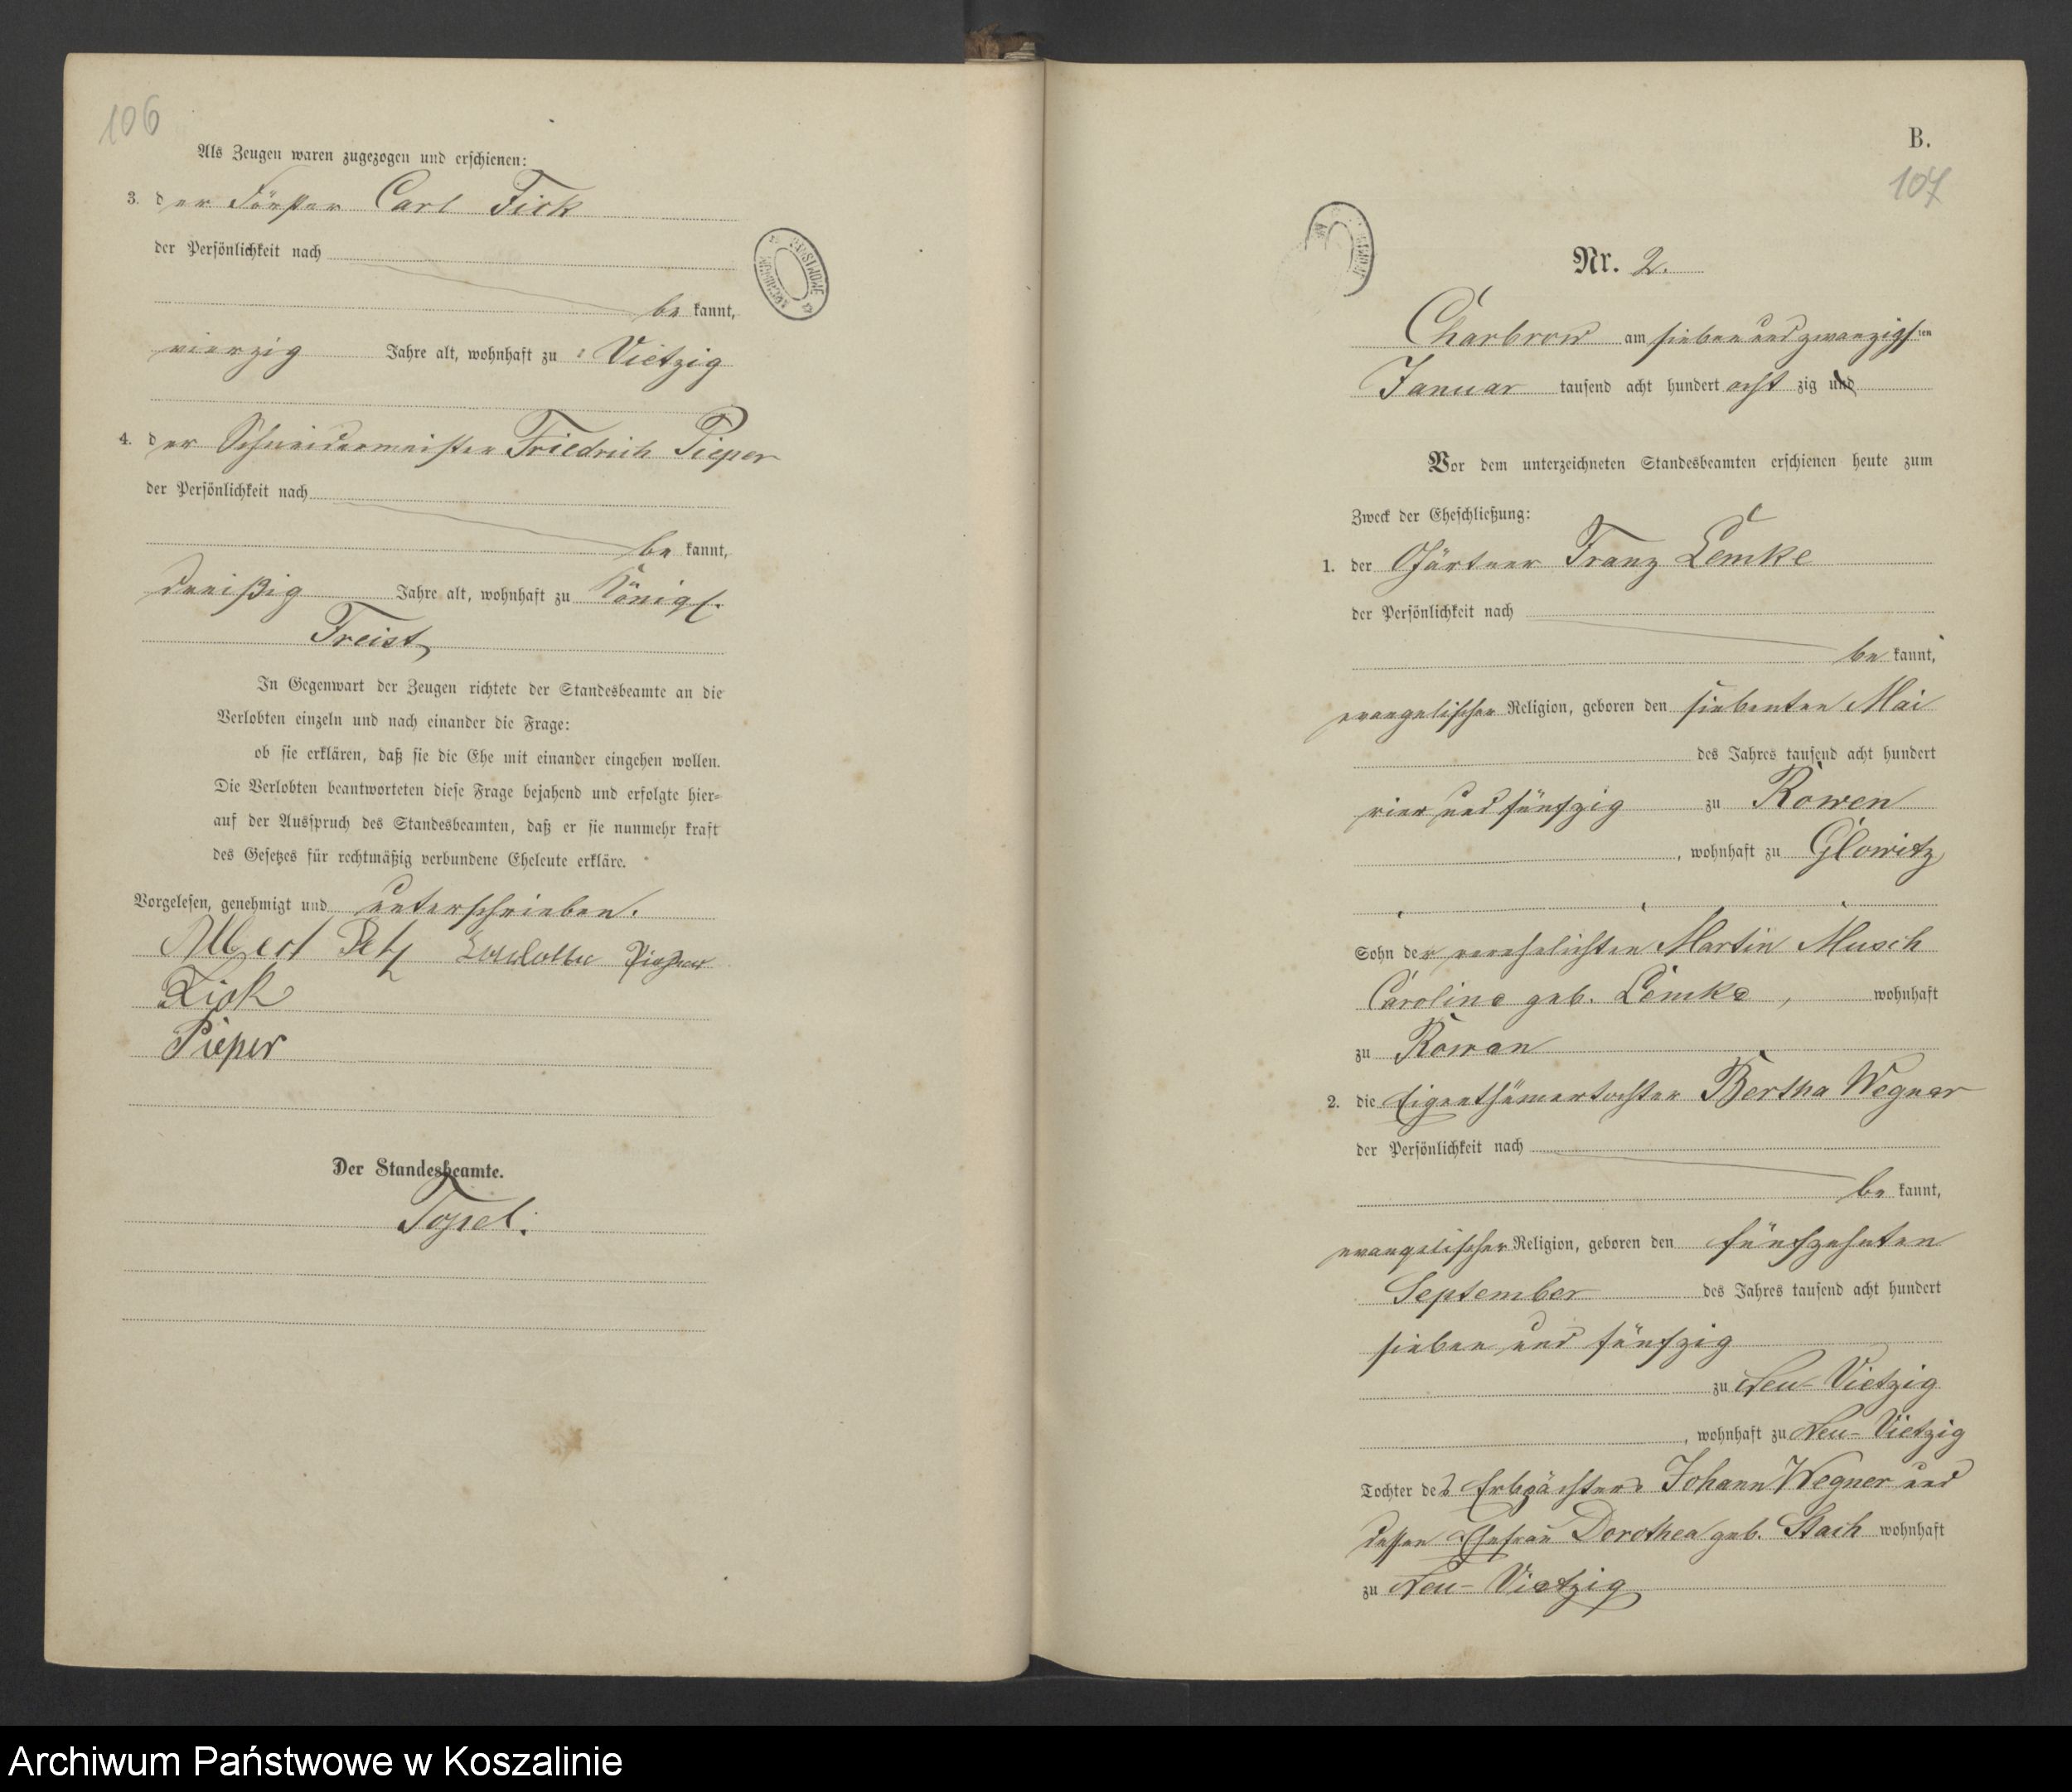 106
Als Zeugen waren zugezogen und erschienen:
3. der Förster Carl Fick
der Persönlichkeit nach
be kannt,
vierzig Jahre alt, wohnhaft zu Vietzig
4. der Schneidermeister Friedrich Pieper
der Persönlichkeit nach
be kannt,
dreißig Jahre alt, wohnhaft zu Königl.
Freist
In Gegenwart der Zeugen richtete der Standesbeamte an die
Verlobten einzeln und nach einander die Frage:
ob sie erklären, daß sie die Ehe mit einander eingehen wollen.
Die Verlobten beantworteten diese Frage bejahend und erfolgte hier=
auf der Ausspruch des Standesbeamten, daß er sie nunmehr kraft
des Gesetzes für rechtmäßig verbundene Eheleute erkläre.
Vorgelesen, genehmigt und unterschrieben.
Albert
Fick
Pieper
Der Standesbeamte.
Topel.
B.
107
Nr. 2.
Charbrow am sieben und zwanzigsten
Januar tausend acht hundert acht zig und
Vor dem unterzeichneten Standesbeamten erschienen heute zum
Zweck der Eheschließung:
1. der Gärtner Franz Lemke
der Persönlichkeit nach
be kannt,
evangelischer Religion, geboren den siebenten Mai
des Jahres tausend acht hundert
vier und fünfzig zu Rowen
, wohnhaft zu Glowitz
Sohn der verehelichten Martin Musch
Caroline geb. Lemke, wohnhaft
zu Rowen
2. die Eigenthümertochter Bertha Wegner
der Persönlichkeit nach
be kannt,
evangelischer Religion, geboren den fünfzehnten
September des Jahres tausend acht hundert
sieben und fünfzig
zu Neu-Vietzig
, wohnhaft zu Neu-Vietzig
Tochter des Erbpächters Johann Wegner und
dessen Ehefrau Dorothea geb. Stach wohnhaft
zu Neu-Vietzig
Archiwum Państwowe w Koszalinie